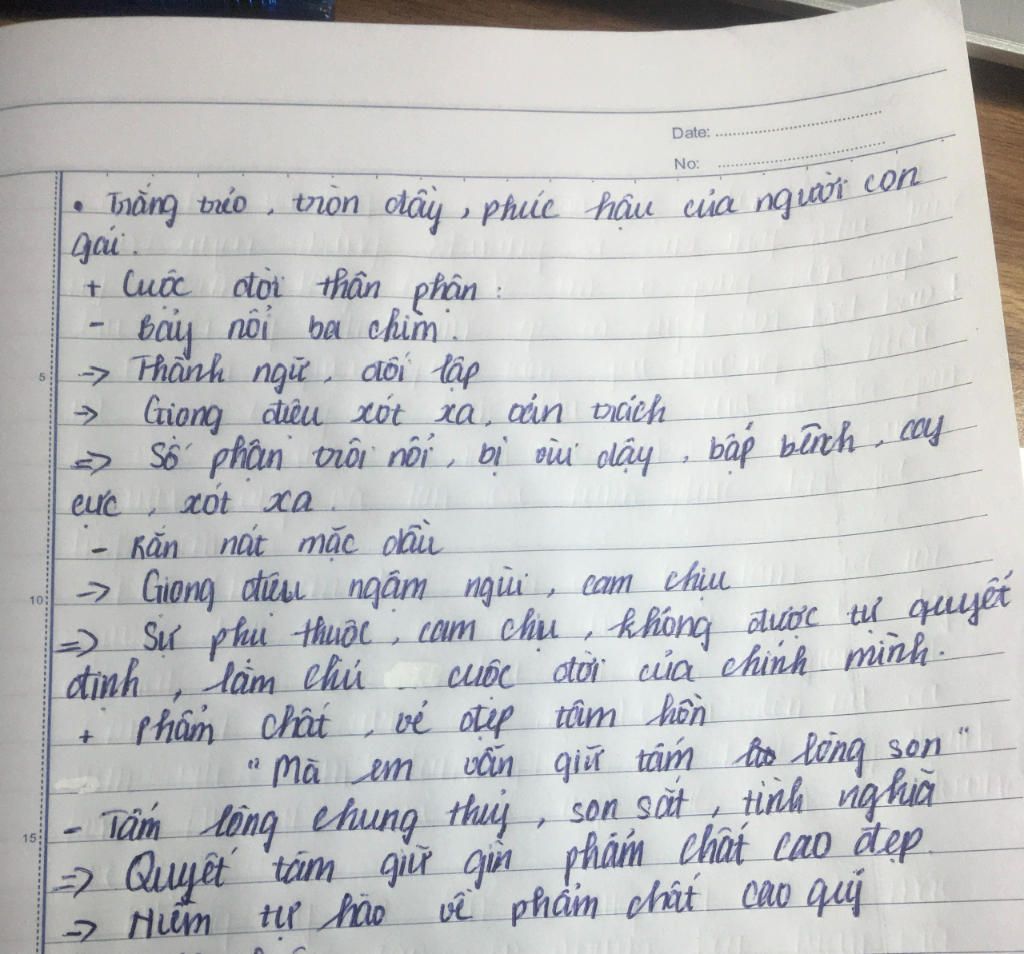 Date:
No:
• Trắng trẻo, tròn đầy, phúc hậu của người con
gái.
+ Cuộc đời thân phận:
- Bảy nổi ba chìm.
-> Thành ngữ, đối lập
5
-> Giọng điệu xót xa, oán trách
=> Số phận trôi nổi, bị vùi dập, bấp bênh, cay
cực, xót xa.
- Rắn nát mặc dầu
-> Giọng điệu ngậm ngùi, cam chịu
10
=> Sự phụ thuộc, cam chịu, không được tự quyết
định, làm chủ cuộc đời của chính mình.
+ Phẩm chất, vẻ đẹp tâm hồn
"Mà em vẫn giữ tấm lòng son"
- Tấm lòng chung thuỷ, son sắt, tình nghĩa
15
=> Quyết tâm giữ gìn phẩm chất cao đẹp.
-> Niềm tự hào về phẩm chất cao quý